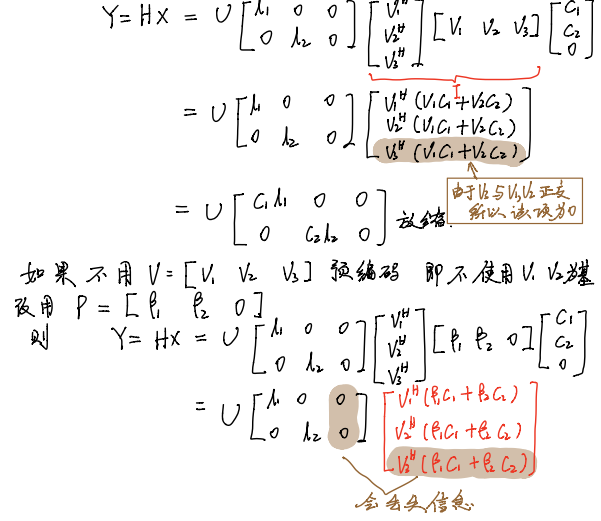 Y = HX = U [λ₁ 0 0; 0 λ₂ 0] [V₁ᴴ; V₂ᴴ; V₃ᴴ] [V₁ V₂ V₃] [C₁; C₂; 0]
I
= U [λ₁ 0 0; 0 λ₂ 0] [V₁ᴴ(V₁C₁+V₂C₂); V₂ᴴ(V₁C₁+V₂C₂); V₃ᴴ(V₁C₁+V₂C₂)]
由于V₃与V₁V₂正交
所以该项为0
= U [C₁λ₁ 0 0; 0 C₂λ₂ 0] 放缩.
如果不用 V = [V₁ V₂ V₃] 预编码 即不使用V₁ V₂为基
改用 P = [P₁ P₂ 0]
则 Y = HX = U [λ₁ 0 0; 0 λ₂ 0] [V₁ᴴ; V₂ᴴ; V₃ᴴ] [P₁ P₂ 0] [C₁; C₂; 0]
= U [λ₁ 0 0; 0 λ₂ 0] [V₁ᴴ(P₁C₁+P₂C₂); V₂ᴴ(P₁C₁+P₂C₂); V₃ᴴ(P₁C₁+P₂C₂)]
会丢失信息